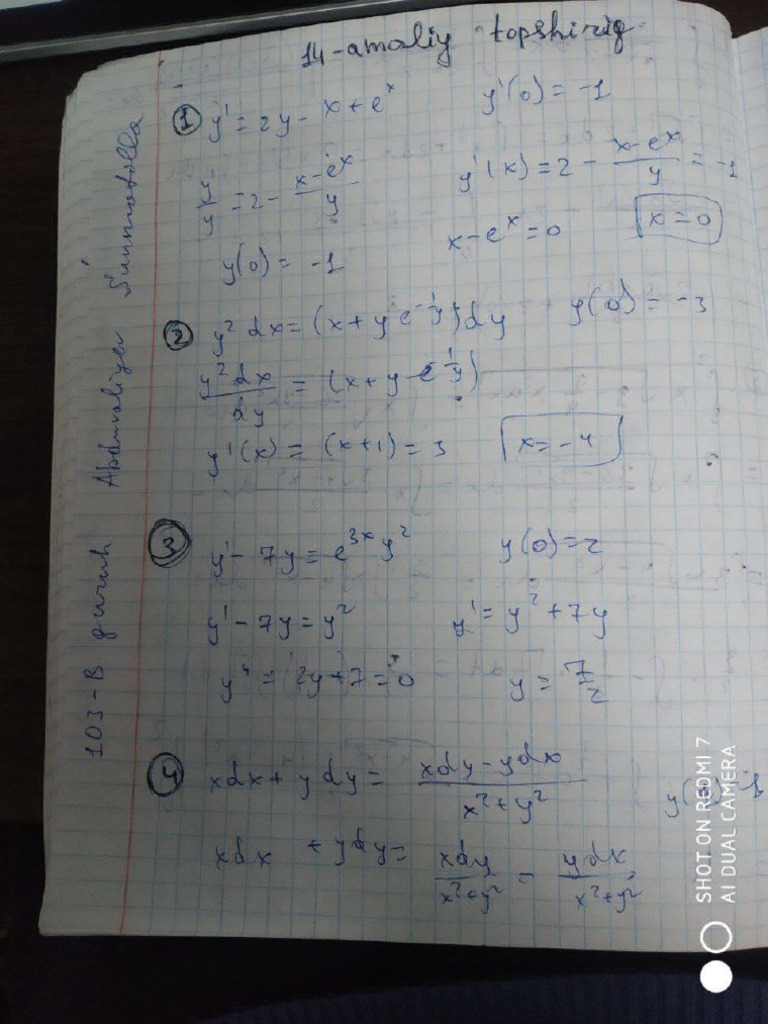 14-amaliy topshiriq
103-B guruh Abdumaliyev Sunnatilla
1 y' = 2y - x + e^x y'(0) = -1
= 2 - (x - e^x)/y y'(x) = 2 - (x - e^x)/y = -1
y(0) = -1 x - e^x = 0 x = 0
2 y² dx = (x + y e^(-1/y)) dy y(0) = -3
y² dx/dy = (x + y - e^(1/y))
y'(x) = (x+1) = 3 x = -4
3 y' - 7y = e^(3x) y² y(0) = 2
y' - 7y = y² y' = y² + 7y
y' = 2y + 7 = 0 y = 7/2
4 xdx + ydy = (xdy - ydx)/(x² + y²)
xdx + ydy = xdy/(x²+y²) = ydx/(x²+y²)
SHOT ON REDMI 7
AI DUAL CAMERA